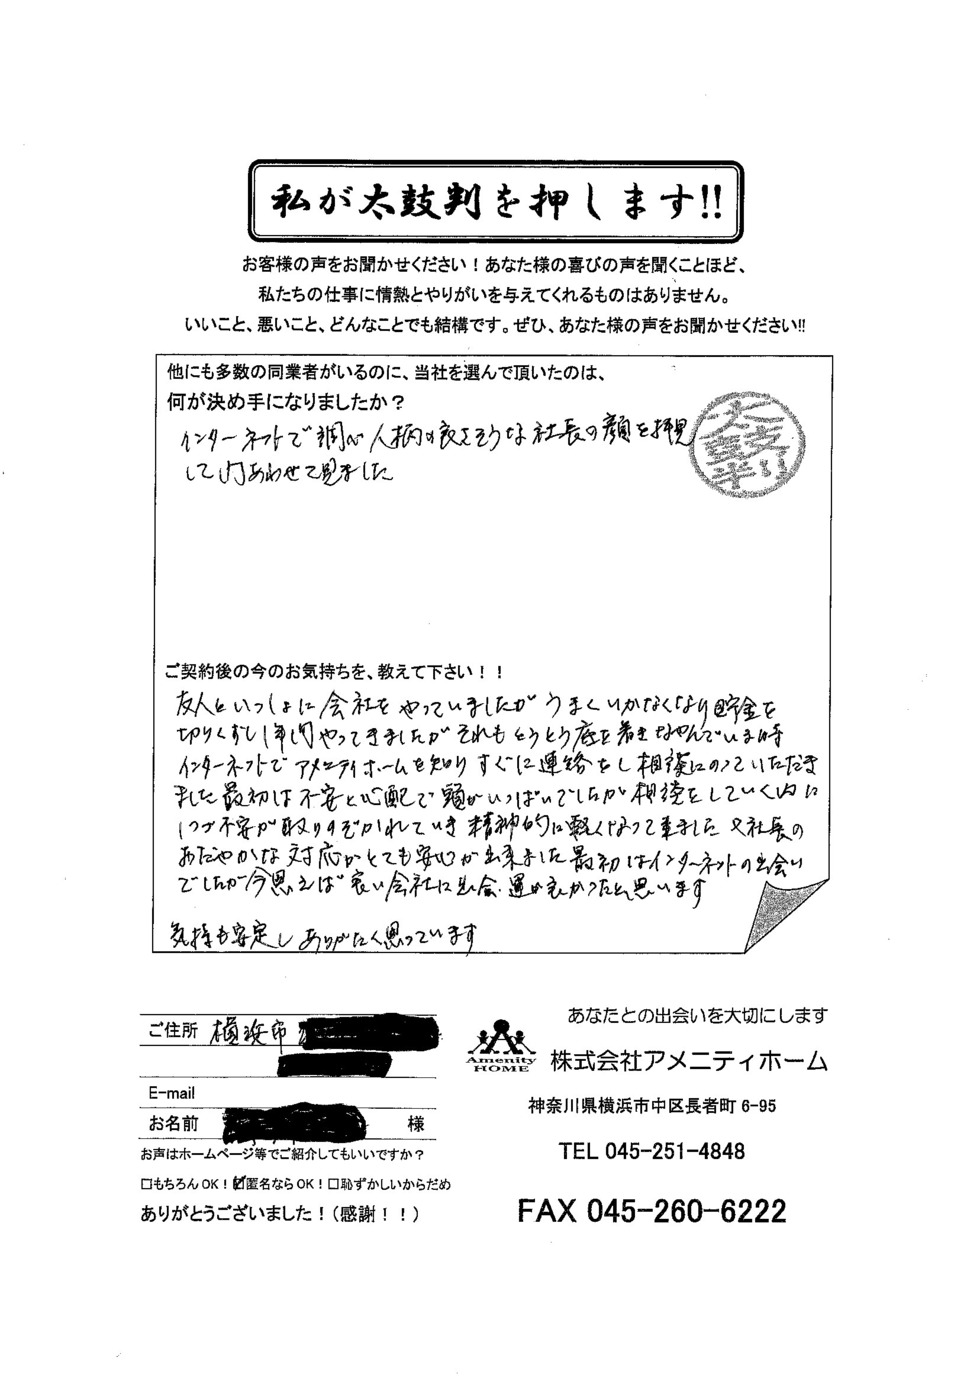 私が太鼓判を押します!!
お客様の声をお聞かせください！あなた様の喜びの声を聞くことほど、
私たちの仕事に情熱とやりがいを与えてくれるものはありません。
いいこと、悪いこと、どんなことでも結構です。ぜひ、あなた様の声をお聞かせください!!
他にも多数の同業者がいるのに、当社を選んで頂いたのは、
何が決め手になりましたか？
インターネットで調べ人柄の良さそうな社長の顔を拝見
して問あわせて見ました
太鼓判
ご契約後の今のお気持ちを、教えて下さい！！
友人といっしょに会社をやっていましたがうまくいかなくなり貯金を
切りくずし1年間やってきましたがそれもとうとう底を着きなやんでいる時
インターネットでアメニティホームを知りすぐに連絡をし相談にのっていただき
ました最初は不安と心配で頭がいっぱいでしたが相談をしていく内に
1つづ不安が取りのぞかれていき精神的に軽くなって来ました又社長の
おだやかな対応がとても安心が出来ました最初はインターネットの出会い
でしたが今思えば良い会社に出会い運が良かったと思います
気持も安定しありがたく思っています
ご住所 横浜市
E-mail
お名前 様
お声はホームページ等でご紹介してもいいですか？
□もちろんOK！☑匿名ならOK！□恥ずかしいからだめ
ありがとうございました！（感謝！！）
あなたとの出会いを大切にします
Amenity
HOME
株式会社アメニティホーム
神奈川県横浜市中区長者町 6-95
TEL 045-251-4848
FAX 045-260-6222